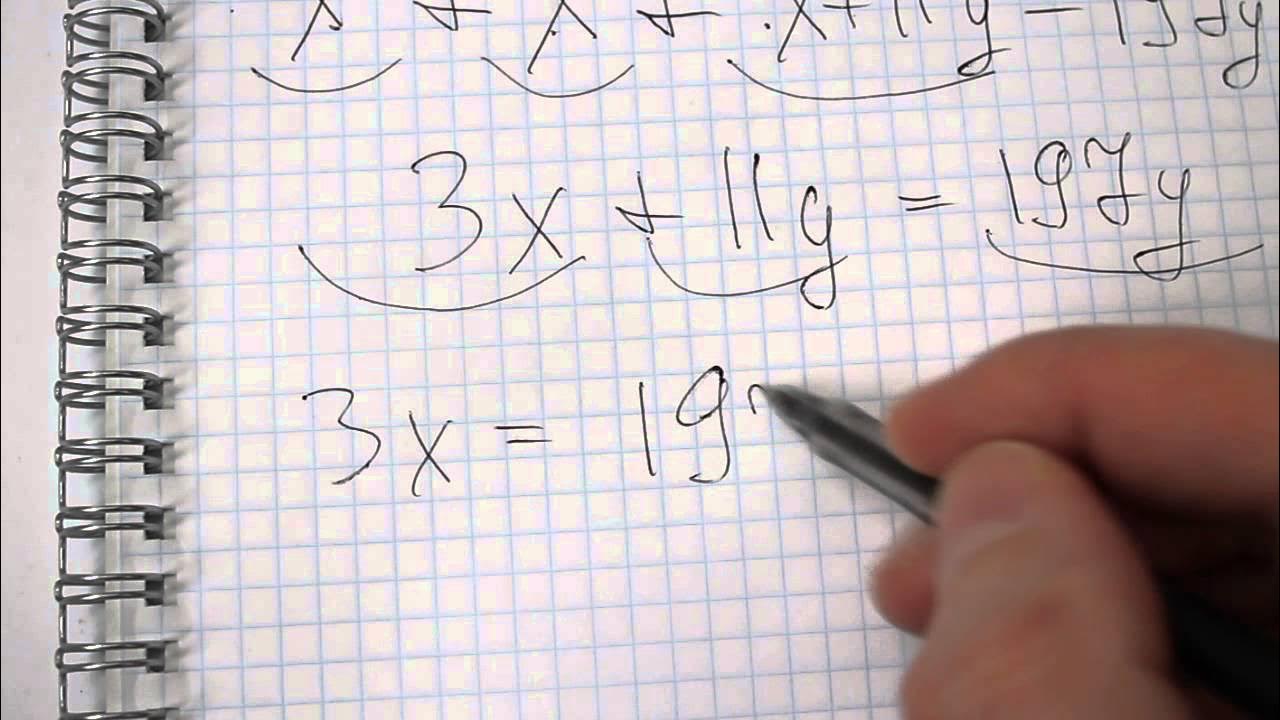 x + x + x + 11y = 197y
3x + 11y = 197y
3x = 19